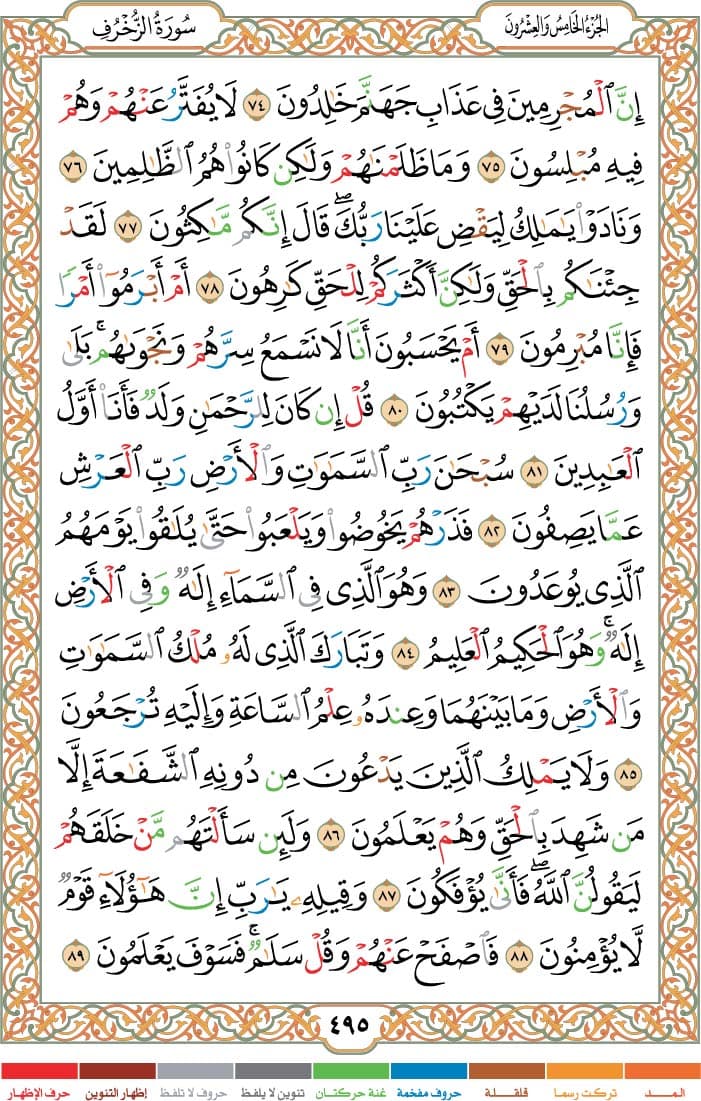 الجُزْءُ الخَامِسُ وَالعِشْرُونَ
سُورَةُ الزُّخْرُفِ
إِنَّ ٱلْمُجْرِمِينَ فِى عَذَابِ جَهَنَّمَ خَٰلِدُونَ ٧٤ لَا يُفَتَّرُ عَنْهُمْ وَهُمْ
فِيهِ مُبْلِسُونَ ٧٥ وَمَا ظَلَمْنَٰهُمْ وَلَٰكِن كَانُوا۟ هُمُ ٱلظَّٰلِمِينَ ٧٦
وَنَادَوْا۟ يَٰمَٰلِكُ لِيَقْضِ عَلَيْنَا رَبُّكَ ۖ قَالَ إِنَّكُم مَّٰكِثُونَ ٧٧ لَقَدْ
جِئْنَٰكُم بِٱلْحَقِّ وَلَٰكِنَّ أَكْثَرَكُمْ لِلْحَقِّ كَٰرِهُونَ ٧٨ أَمْ أَبْرَمُوٓا۟ أَمْرًا
فَإِنَّا مُبْرِمُونَ ٧٩ أَمْ يَحْسَبُونَ أَنَّا لَا نَسْمَعُ سِرَّهُمْ وَنَجْوَىٰهُم ۚ بَلَىٰ
وَرُسُلُنَا لَدَيْهِمْ يَكْتُبُونَ ٨٠ قُلْ إِن كَانَ لِلرَّحْمَٰنِ وَلَدٌ فَأَنَا۠ أَوَّلُ
ٱلْعَٰبِدِينَ ٨١ سُبْحَٰنَ رَبِّ ٱلسَّمَٰوَٰتِ وَٱلْأَرْضِ رَبِّ ٱلْعَرْشِ
عَمَّا يَصِفُونَ ٨٢ فَذَرْهُمْ يَخُوضُوا۟ وَيَلْعَبُوا۟ حَتَّىٰ يُلَٰقُوا۟ يَوْمَهُمُ
ٱلَّذِى يُوعَدُونَ ٨٣ وَهُوَ ٱلَّذِى فِى ٱلسَّمَآءِ إِلَٰهٌ وَفِى ٱلْأَرْضِ
إِلَٰهٌ ۚ وَهُوَ ٱلْحَكِيمُ ٱلْعَلِيمُ ٨٤ وَتَبَارَكَ ٱلَّذِى لَهُۥ مُلْكُ ٱلسَّمَٰوَٰتِ
وَٱلْأَرْضِ وَمَا بَيْنَهُمَا وَعِندَهُۥ عِلْمُ ٱلسَّاعَةِ وَإِلَيْهِ تُرْجَعُونَ
٨٥ وَلَا يَمْلِكُ ٱلَّذِينَ يَدْعُونَ مِن دُونِهِ ٱلشَّفَٰعَةَ إِلَّا
مَن شَهِدَ بِٱلْحَقِّ وَهُمْ يَعْلَمُونَ ٨٦ وَلَئِن سَأَلْتَهُم مَّنْ خَلَقَهُمْ
لَيَقُولُنَّ ٱللَّهُ ۖ فَأَنَّىٰ يُؤْفَكُونَ ٨٧ وَقِيلِهِۦ يَٰرَبِّ إِنَّ هَٰٓؤُلَآءِ قَوْمٌ
لَّا يُؤْمِنُونَ ٨٨ فَٱصْفَحْ عَنْهُمْ وَقُلْ سَلَٰمٌ ۚ فَسَوْفَ يَعْلَمُونَ ٨٩
٤٩٥
المــــد
تركت رسما
قلقــلة
حروف مفخمة
غنة حركتان
تنوين لا يلفظ
حروف لا تلفظ
إظهار التنوين
حرف الإظهار